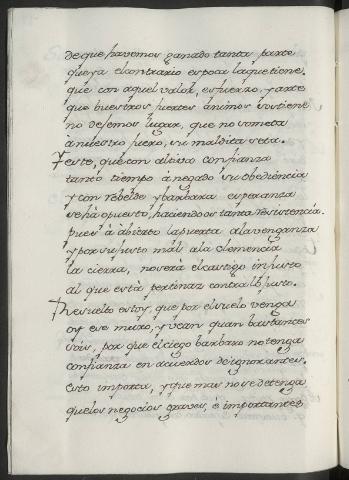 de que havemos ganado tanta parte
que ya el contrario es poca la que tiene.
que con aquel valor, esfuerzo, y arte
que buestros fuertes ánimos sostiene
no dejemos lugar, que no someta
a nuestro fuero, su maldita seta.
Y este, que con altiva confianza
tanto tiempo á negado su obediencia
y con rebelde y barbara esperanza
se há opuesto, haciendoos tanta resistencia.
pues á abierto la puerta a la venganza
y por su justo mál a la clemencia
la cierra, no será el castigo injusto
al que está pertinaz contra lo justo.
Resuelto estoy, que por el suelo venga
oy ese muro, y vean quan bastantes
sois, por que el ciego barbaro no tenga
confianza en acuerdos de ignorantes.
Esto importa, y que mas no se detenga
que los negocios graves, é importantes